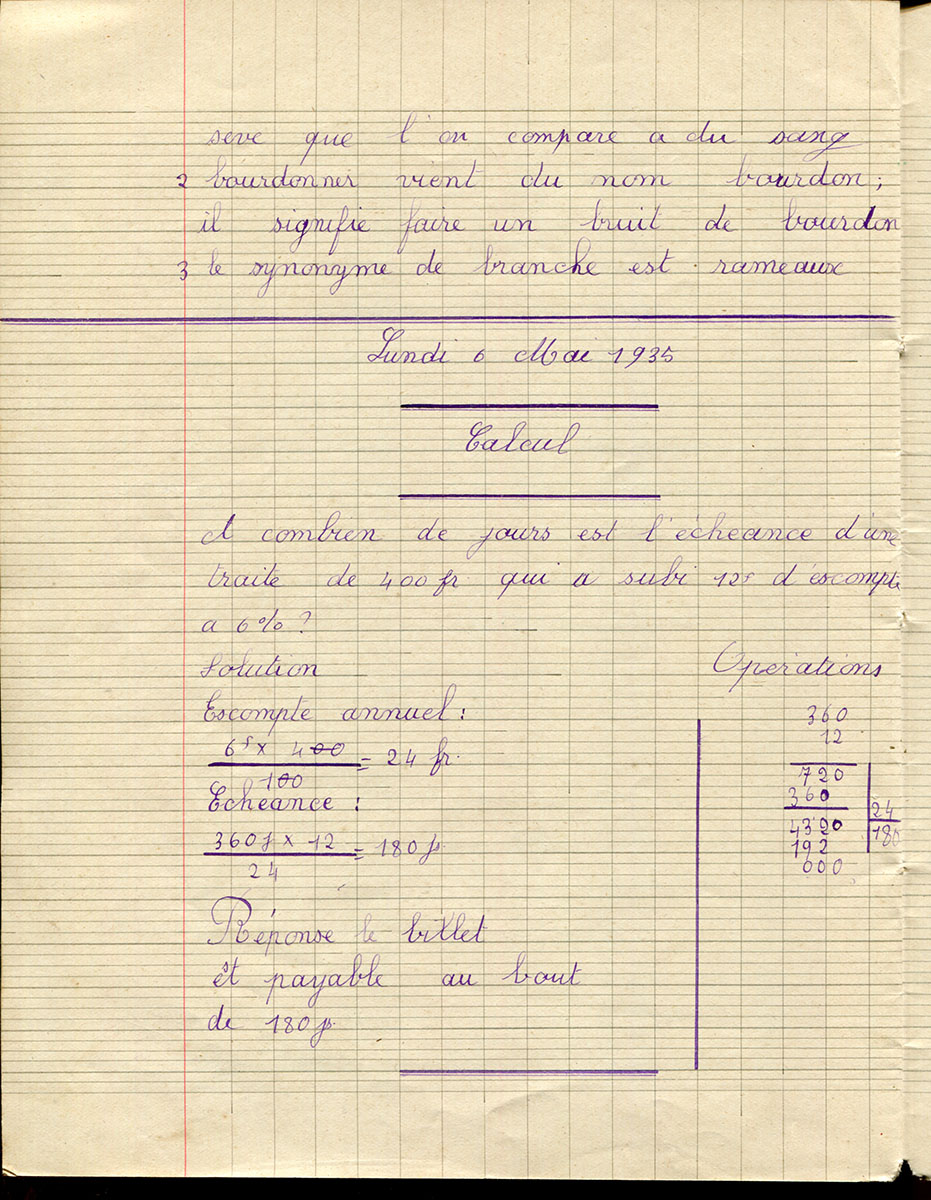 seve que l'on compare a du sang
2 bourdonner vient du nom bourdon;
il signifie faire un bruit de bourdon
3 le synonyme de branche est rameaux
Lundi 6 Mai 1935
Calcul
A combien de jours est l'écheance d'une
traite de 400 fr qui a subi 12f d'éscompte
a 6% ?
Solution
Operations
Escompte annuel :
6f x 400
100
= 24 fr.
Echeance :
360 j x 12
24
= 180 j.
Réponse le billet
êt payable au bout
de 180 j.
360
12
720
360
4320
24
180
192
000